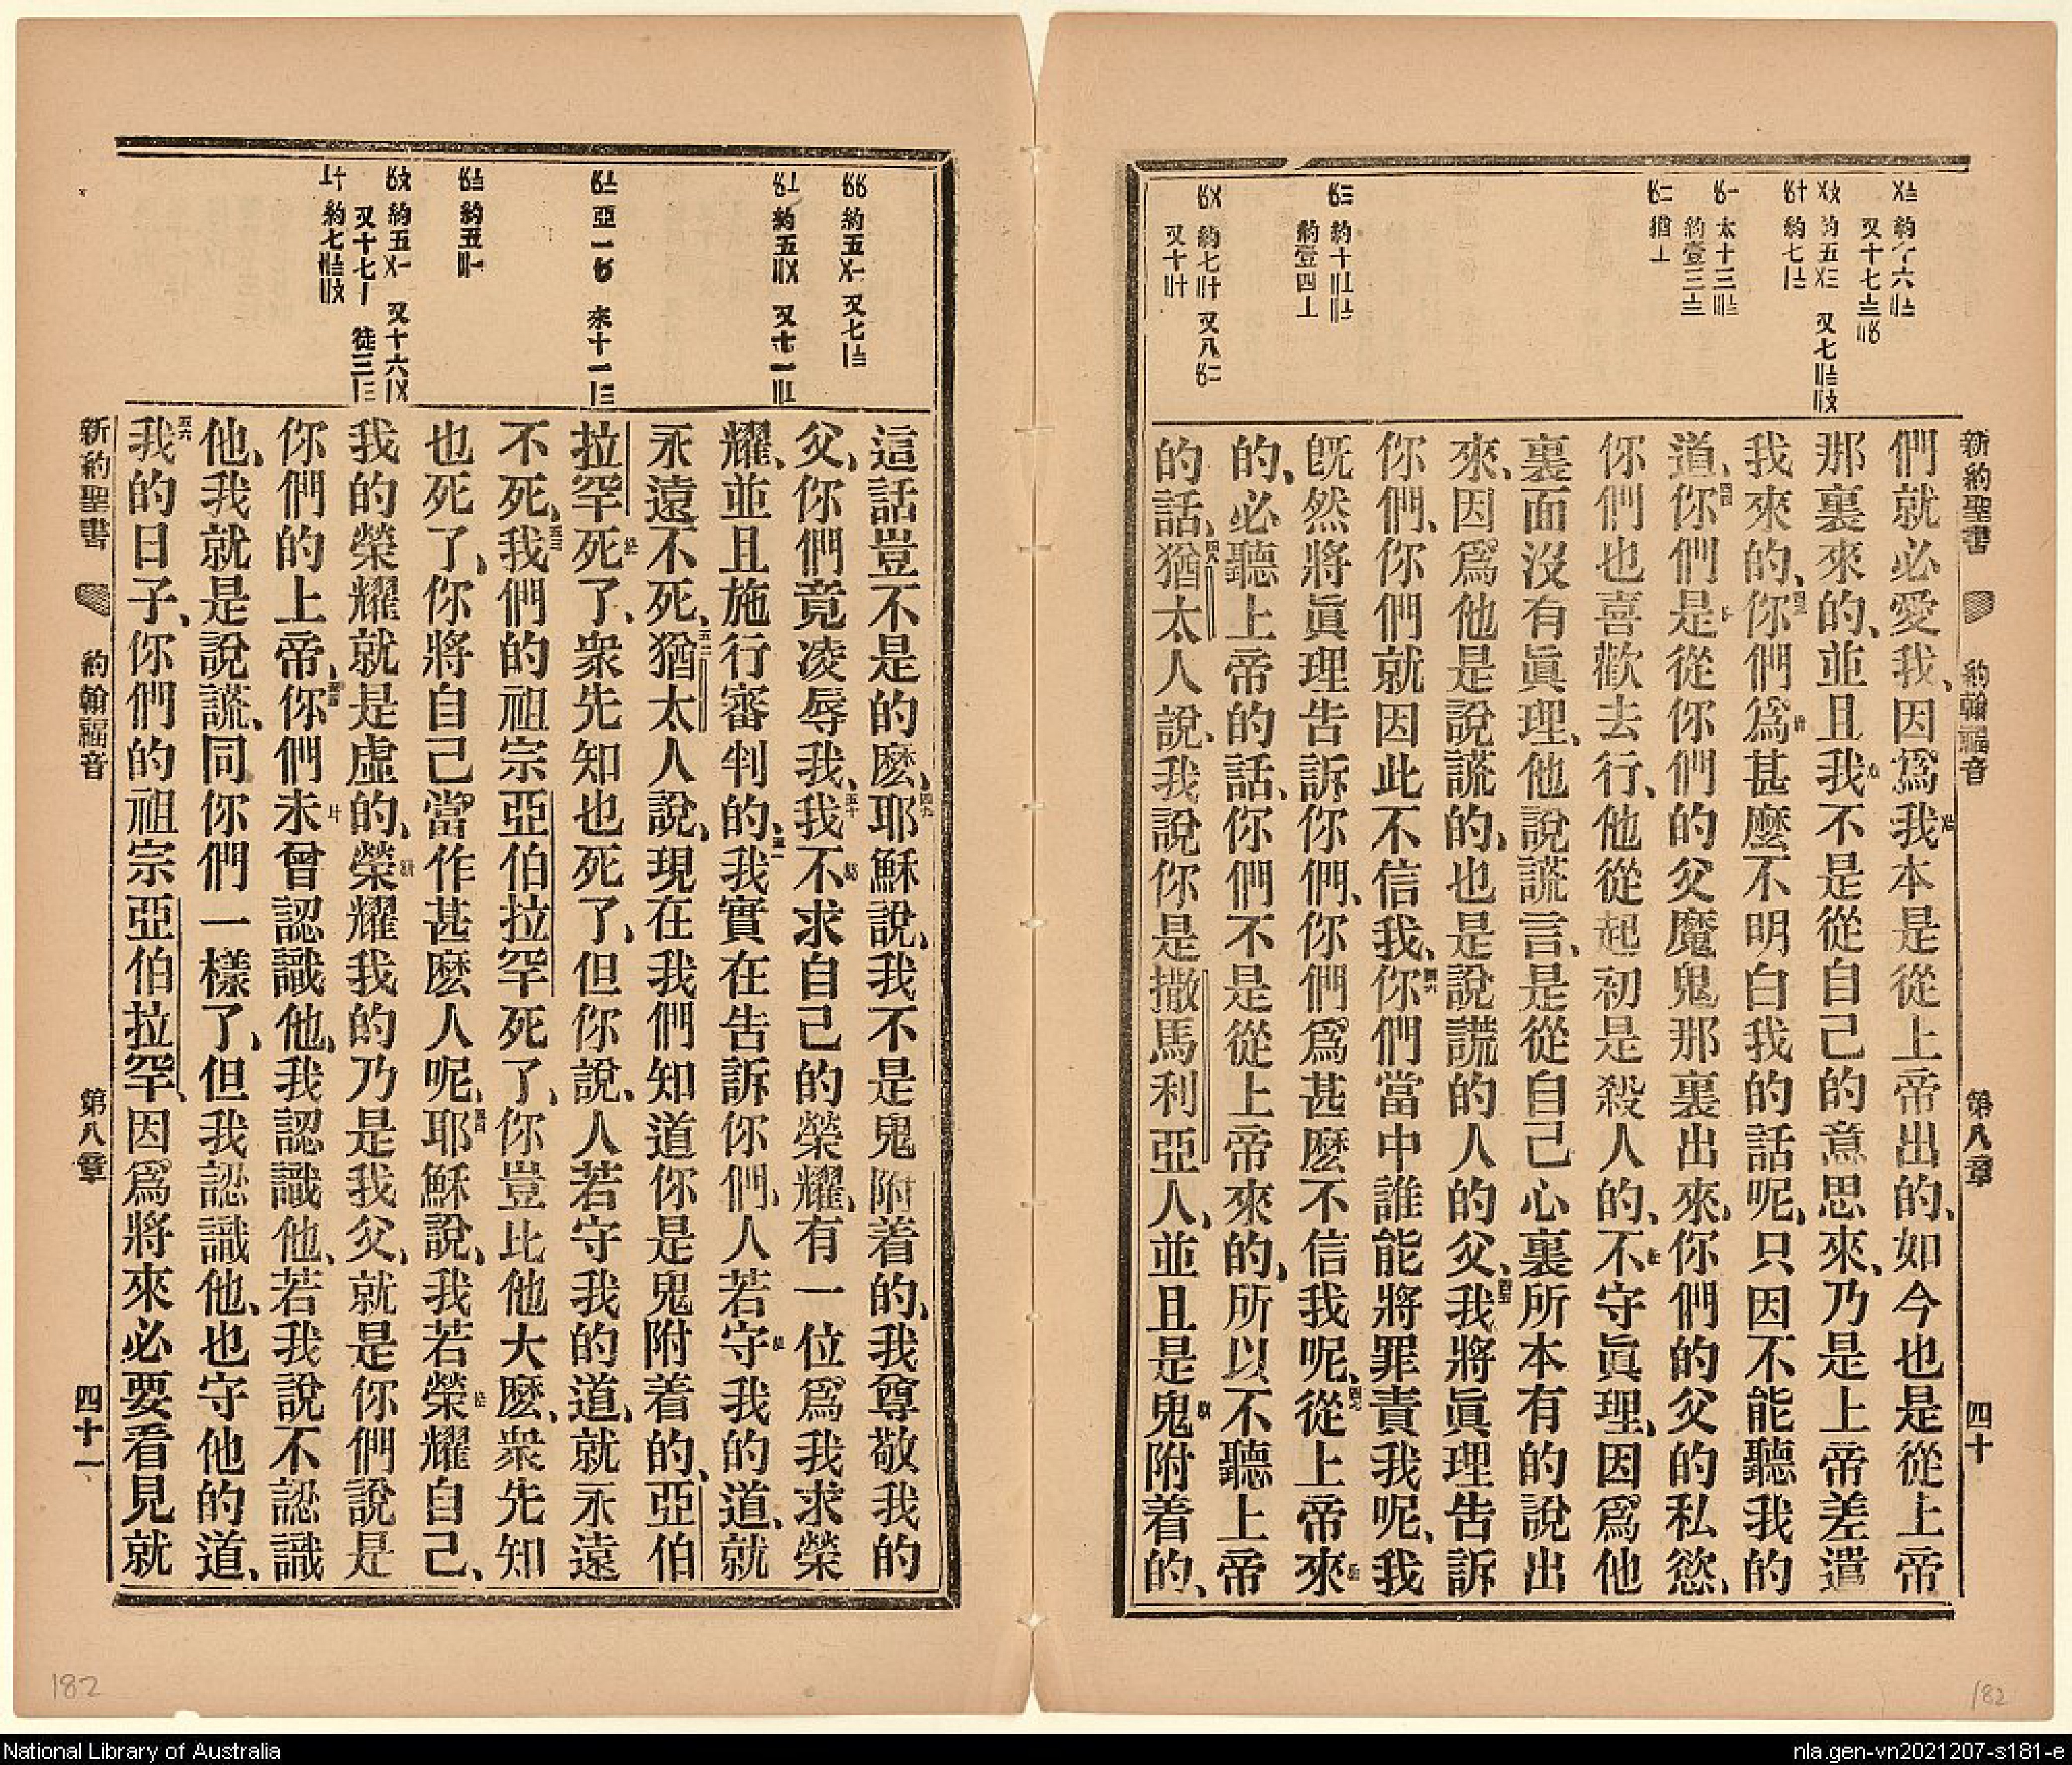 新約聖書 約翰福音 第八章 四十
們就必愛我、因爲我本是從上帝出的、如今也是從上帝
那裏來的、並且我不是從自己的意思來、乃是上帝差遣
我來的、四三你們爲甚麼不明白我的話呢、只因不能聽我的
道、四四你們是從你們的父魔鬼那裏出來、你們的父的私慾、
你們也喜歡去行、他從起初是殺人的、不守眞理、因爲他
裏面沒有眞理、他說謊言、是從自己心裏所本有的說出
來、因爲他是說謊的、也是說謊的人的父、四五我將眞理告訴
你們、你們就因此不信我、四六你們當中誰能將罪責我呢、我
旣然將眞理告訴你們、你們爲甚麼不信我呢、四七從上帝來
的、必聽上帝的話、你們不是從上帝來的、所以不聽上帝
的話、四八猶太人說、我說你是撒馬利亞人、並且是鬼附着的、
這話豈不是的麽、四九耶穌說、我不是鬼附着的、我尊敬我的
父、你們竟凌辱我、五十我不求自己的榮耀、有一位爲我求榮
耀、並且施行審判的、五一我實在告訴你們、人若守我的道、就
永遠不死、五二猶太人說、現在我們知道你是鬼附着的、亞伯
拉罕死了、衆先知也死了、但你說、人若守我的道、就永遠
不死、五三我們的祖宗亞伯拉罕死了、你豈比他大麽、衆先知
也死了、你將自己當作甚麽人呢、五四耶穌說、我若榮耀自己、
我的榮耀就是虛的、榮耀我的乃是我父、就是你們說是
你們的上帝、五五你們未曾認識他、我認識他、若我說不認識
他、我就是說謊、同你們一樣了、但我認識他、也守他的道、
五六我的日子、你們的祖宗亞伯拉罕、因爲將來必要看見就
新約聖書 約翰福音 第八章 四十一
182
182
National Library of Australia
nla.gen-vn2021207-s181-e